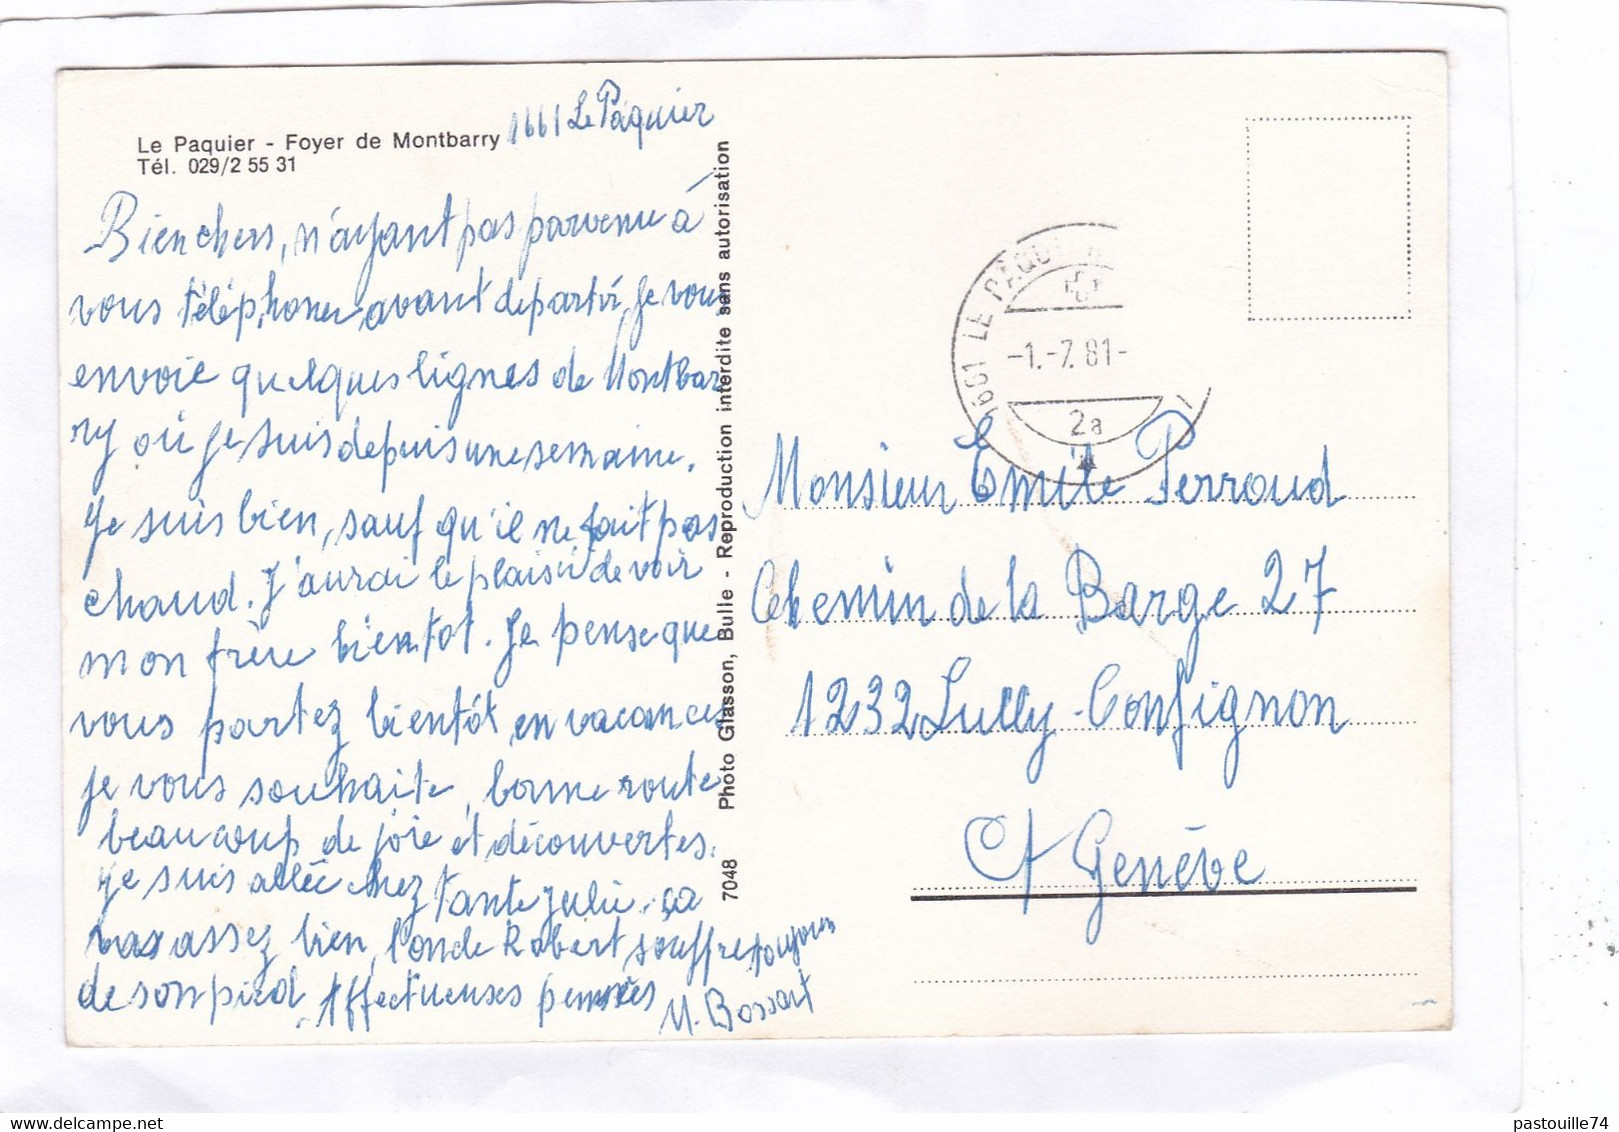 Le Paquier - Foyer de Montbarry
1661 Le Pâquier
Tél. 029/2 55 31
Bien chers, n'ayant pas parvenu à
vous téléphoner, avant de partir, je vous
envoie quelques lignes de Montbar
ry où je suis depuis une semaine.
Je suis bien, sauf qu'il ne fait pas
chaud. J'aurai le plaisir de voir
mon frère bientot. Je pense que
vous partez bientôt, en vacances
je vous souhaite, bonne route
beaucoup de joie et découvertes.
Je suis allée chez tante Julie. ça
vas assez bien, l'oncle Robert souffre toujours
de son pied. Affectueuses pensées
M. Bossart
Photo Glasson, Bulle - Reproduction interdite sans autorisation
7048
1661 LE PÂQUI
-1.-7.81-
2a
Monsieur Emile Perroud
Chemin de la Barge 27
1232 Lully-Confignon
Ct Genève
pastouille74